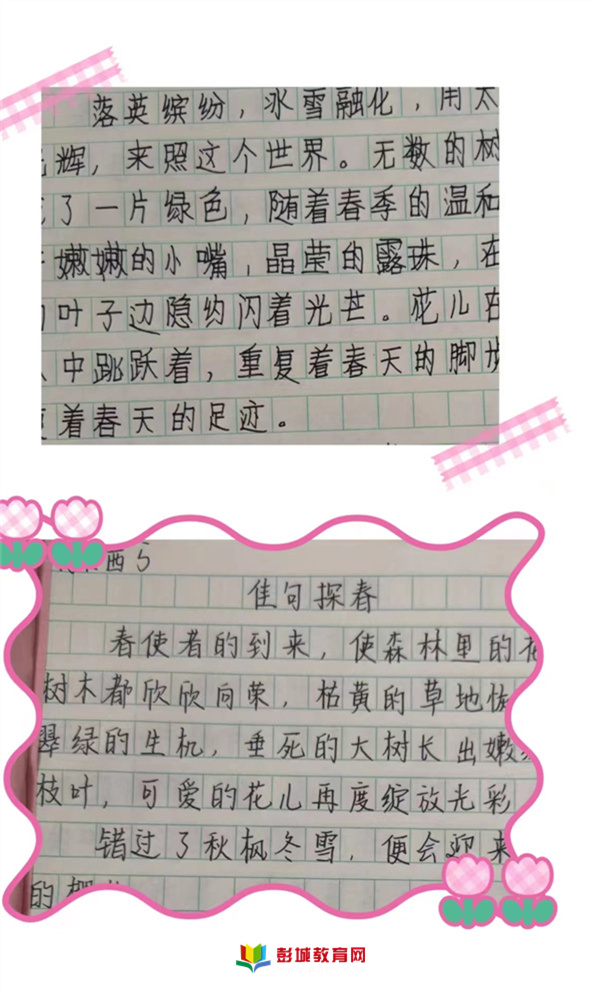 落英缤纷，冰雪融化，用太
辉，来照这个世界。无数的树
了一片绿色，随着春季的温和
嫩嫩的小嘴，晶莹的露珠，在
叶子边隐约闪着光芒。花儿在
中跳跃着，重复着春天的脚步
着春天的足迹。
西5
佳句探春
春使者的到来，使森林里的花
树木都欣欣向荣，枯黄的草地恢
翠绿的生机，垂死的大树长出嫩绿
枝叶，可爱的花儿再度绽放光彩
错过了秋枫冬雪，便会迎来
的
彭城教育网